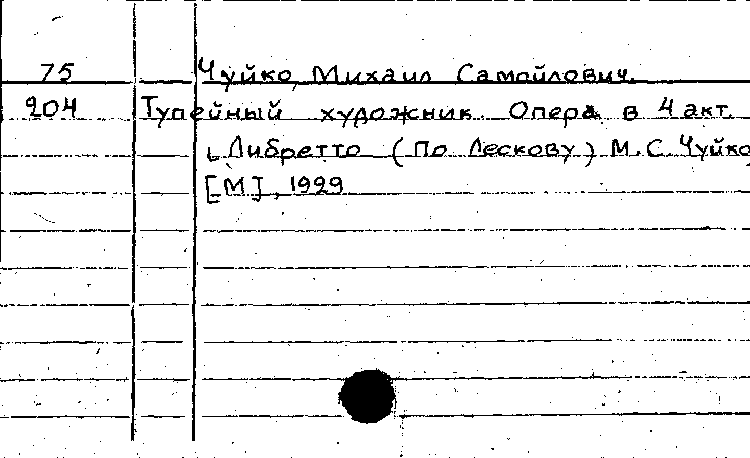 75 Чуйко, Михаил Самойлович.
204 Тупейный художник. Опера в 4 акт.
Либретто (По Лескову) М.С. Чуйко
[М], 1929